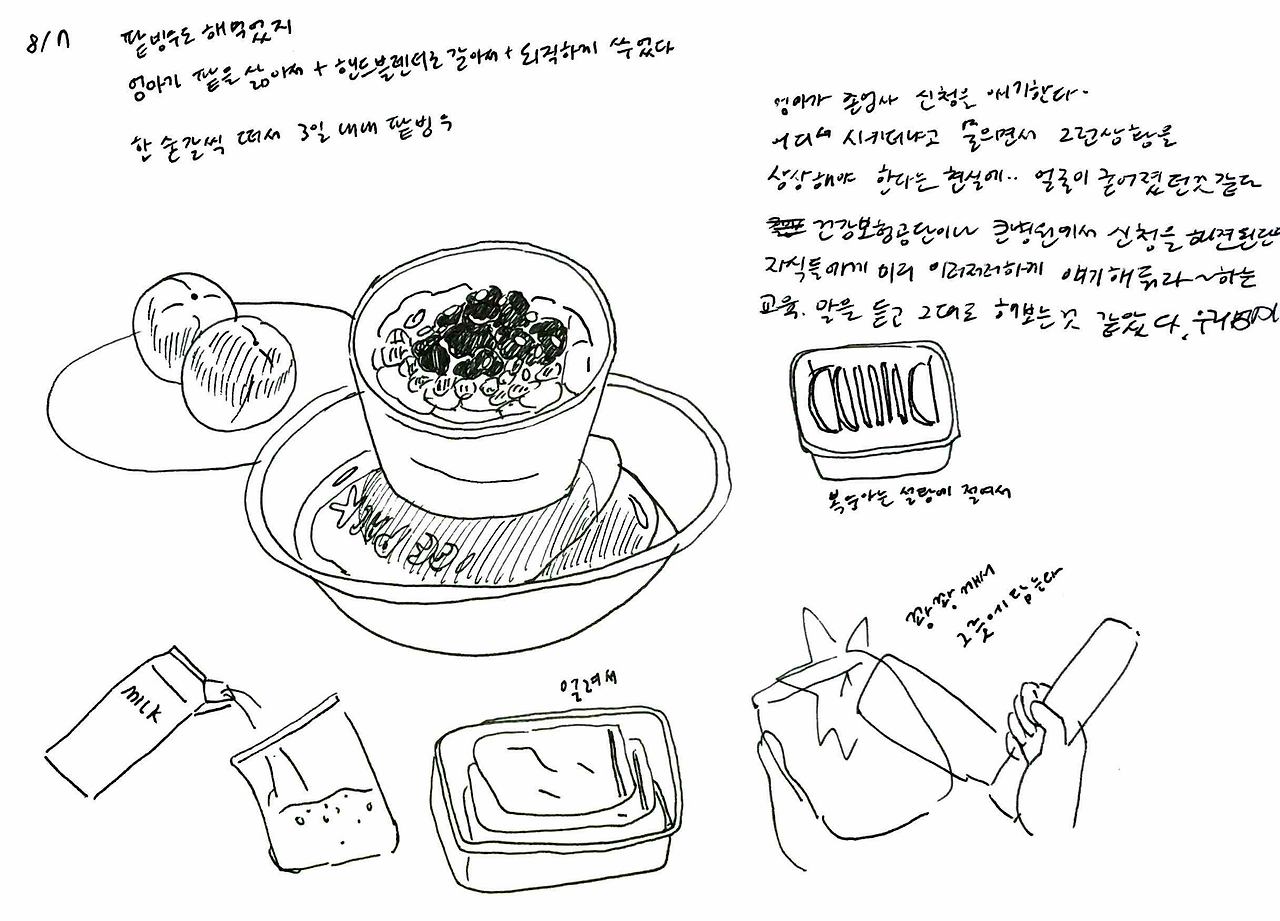 8/7
팥빙수도 해먹었지
엄마가 팥을 삶아서 + 핸드블렌더로 갈아서 + 되직하게 쑤었다
한 숟갈씩 떠서 3일 내내 팥빙수
엄마가 존엄사 신청을 얘기한다.
시키더냐고 물으면서 그런상황을
상상해야 한다는 현실에.. 얼굴이 굳어졌던것 같다
건강보험공단이나 큰병원에서 신청을
자식들에게 미리 이러저러하게 얘기해둬라~하는
교육. 말을 듣고 그대로 해보는것 같았다.
복숭아는 설탕에 절여서
ICE PACK
MILK
얼려서
꽝꽝 깨서
그릇에 담는다